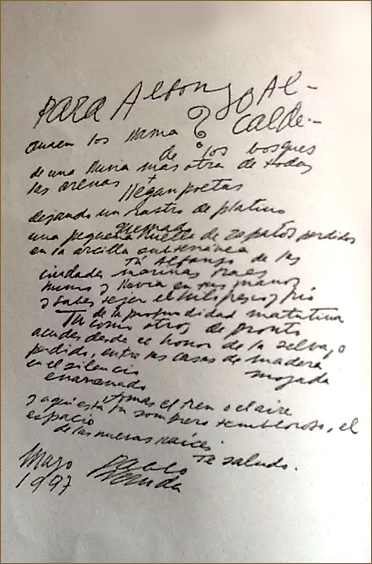 Para Alfonso Al-
calde.-
Quien los llama ?
de los bosques
de una lluvia más otra de todas
las arenas +
llegan poetas
dejando un rastro de platino
una pequeña huella de zapatos perdidos
en la arcilla subterránea
Tú Alfonso de las
ciudades marinas traes
humo y lluvia en tus manos
y sabes tejer el hilo fresco y frío
de la profundidad matutina
Tú como otros de pronto
acudes desde el honor de la selva, o
perdido, entre las casas de madera
mojada
en el silencio
enarenado
Amas el tren o el aire
y aquí está tu sombrero tembloroso, el
espacio
de las nuevas raíces
Te saludo.
Mayo Pablo
1947 Neruda